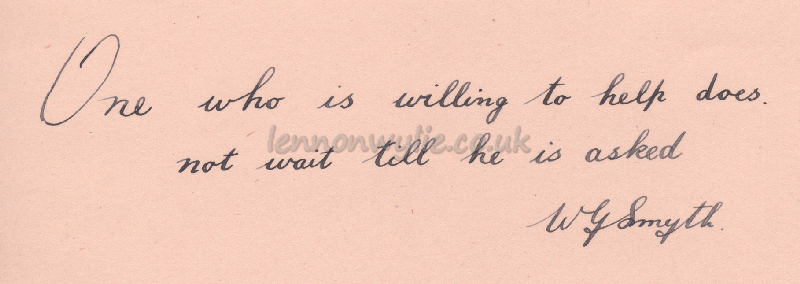 One who is willing to help does.
lennonwylie.co.uk
not wait till he is asked
W G Smyth.